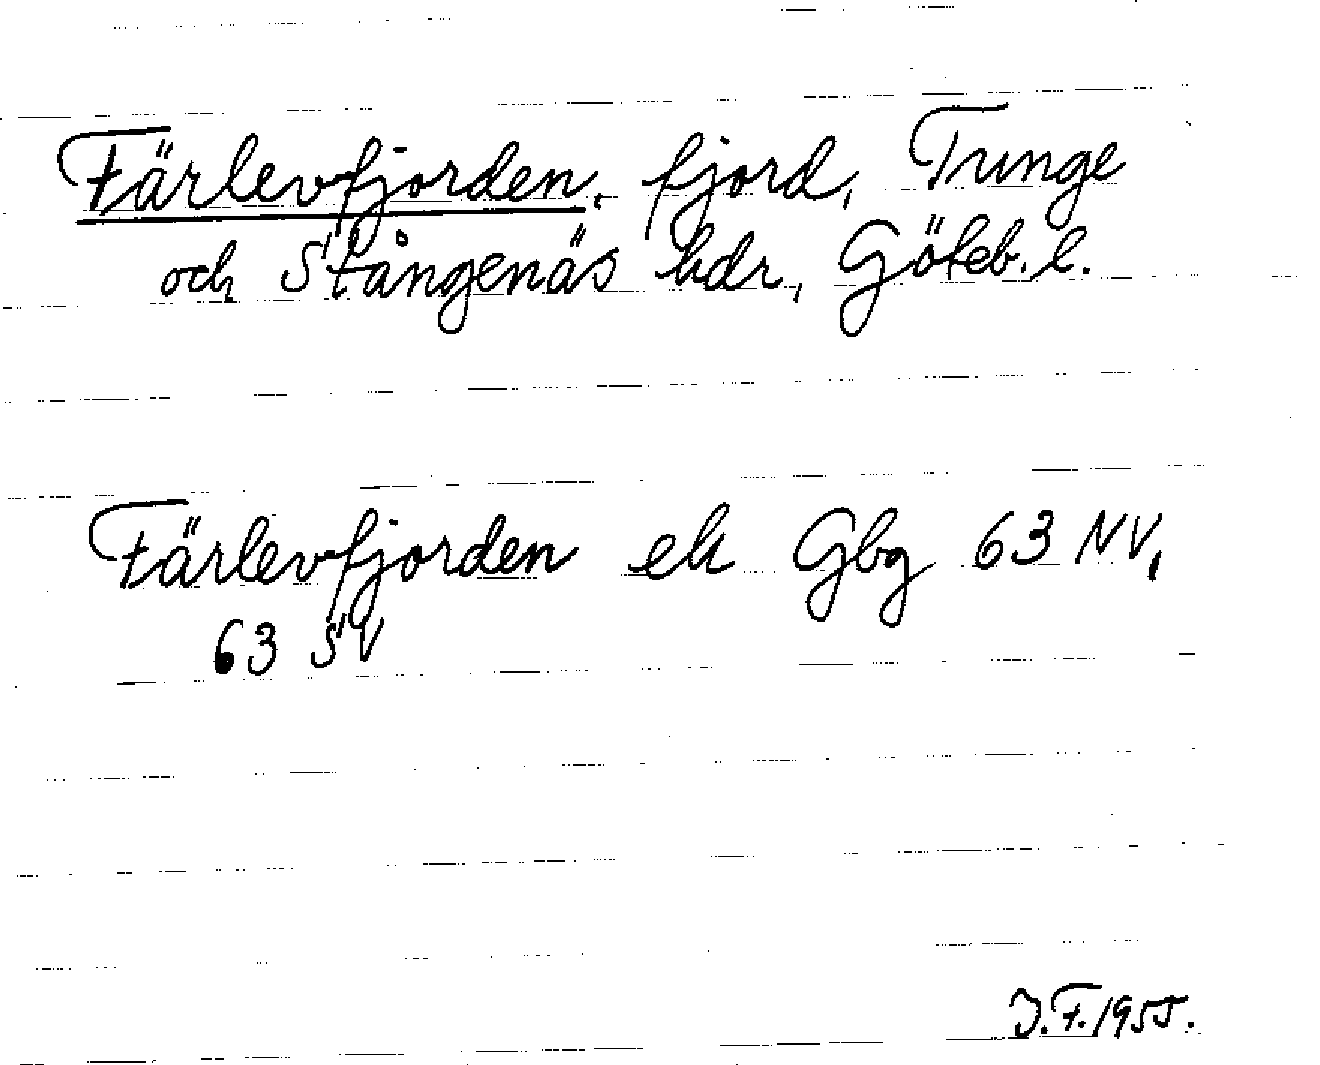 Färlevfjorden, fjord, Tunge
och Stångenäs hdr, Göteb. l.
Färlevfjorden ek Gbg 63 NV,
63 SV
J.F. 1955.